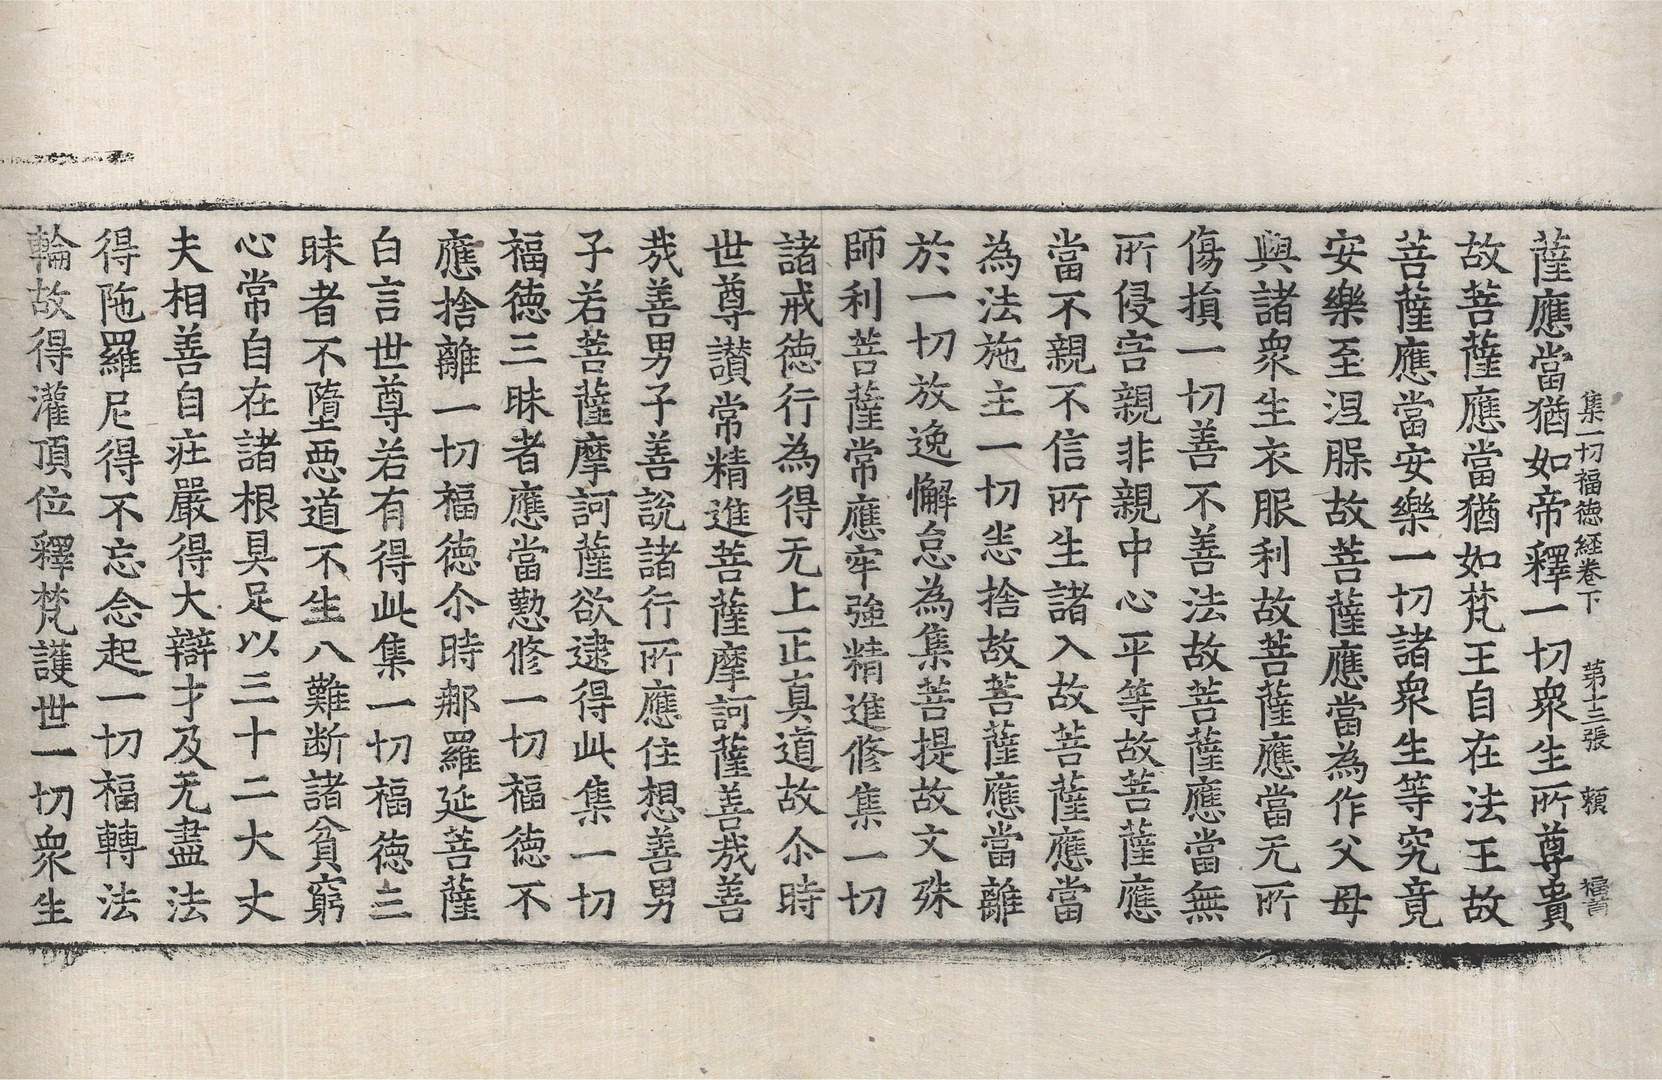 集一切福德経卷下 第十三張 頼
薩應當猶如帝釋一切衆生所尊貴
故菩薩應當猶如梵王自在法王故
菩薩應當安樂一切諸衆生等究竟
安樂至涅槃故菩薩應當為作父母
與諸衆生衣服利故菩薩應當无所
傷損一切善不善法故菩薩應當無
所侵害親非親中心平等故菩薩應
當不親不信所生諸入故菩薩應當
為法施主一切悉捨故菩薩應當離
於一切放逸懈怠為集菩提故文殊
師利菩薩常應牢強精進修集一切
諸戒德行為得无上正真道故尒時
世尊讃常精進菩薩摩訶薩善哉善
哉善男子善說諸行所應住想善男
子若菩薩摩訶薩欲逮得此集一切
福德三昧者應當勤修一切福德不
應捨離一切福德尒時那羅延菩薩
白言世尊若有得此集一切福德三
昧者不墮惡道不生八難断諸貧窮
心常自在諸根具足以三十二大丈
夫相善自疘嚴得大辯才及无盡法
得陁羅尼得不忘念起一切福轉法
輪故得灌頂位釋梵護世一切衆生